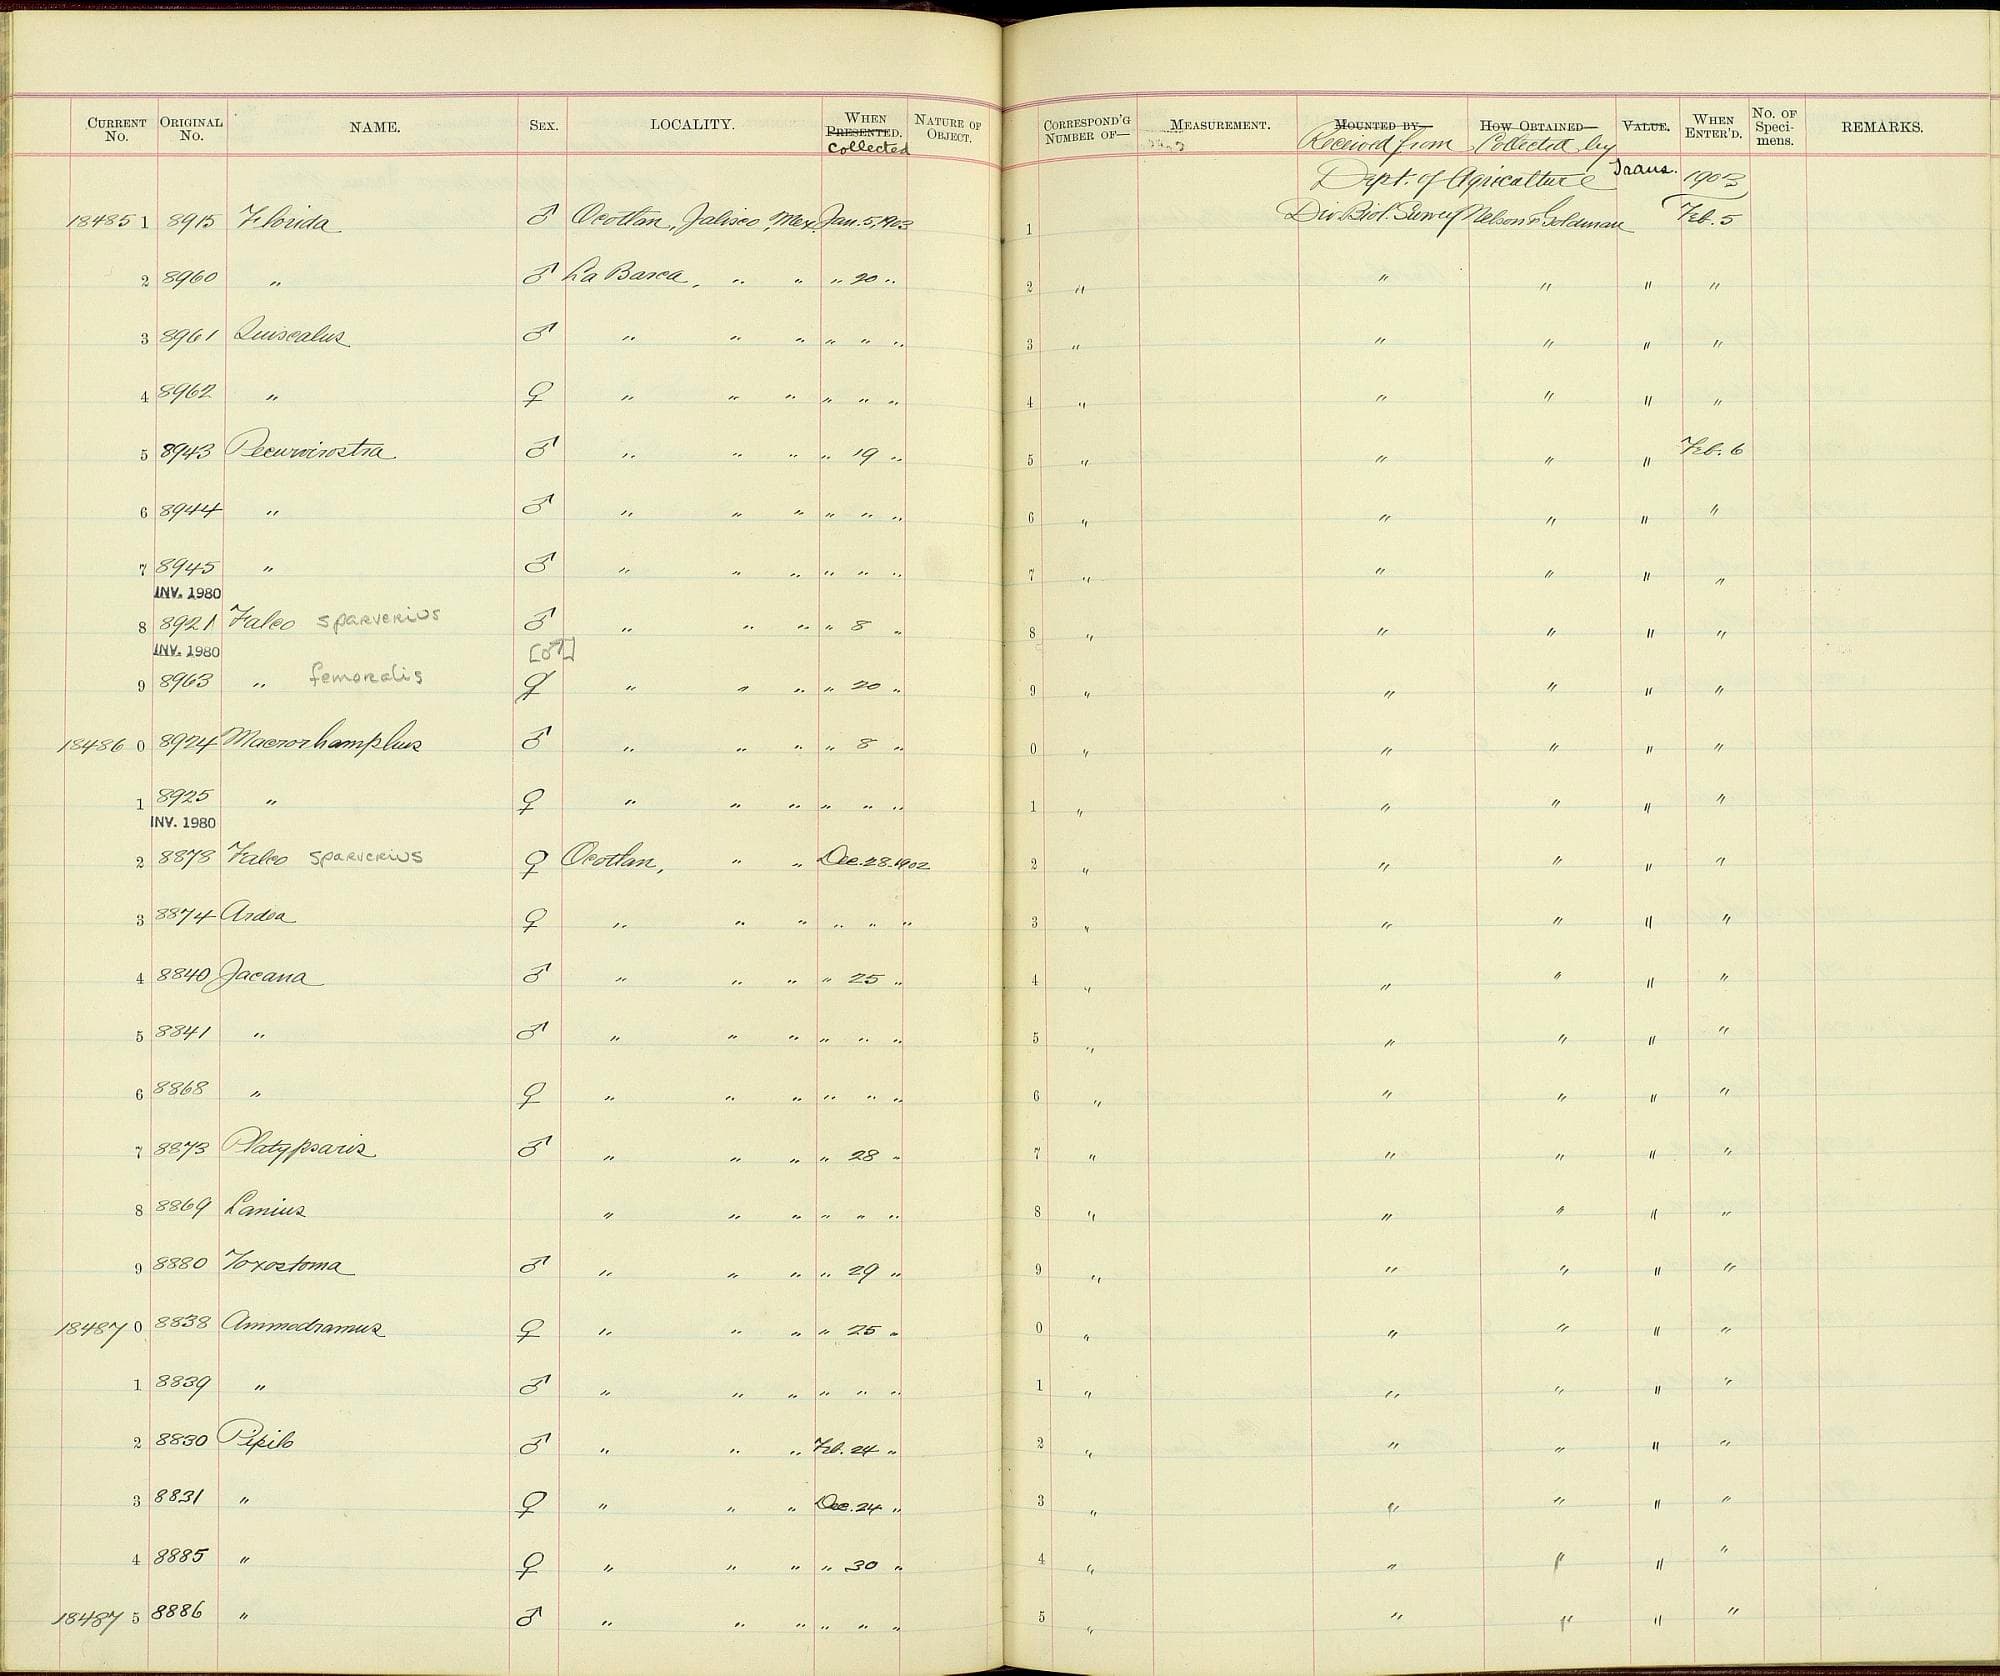 CURRENT No. ORIGINAL No. NAME. SEX. LOCALITY. WHEN PRESENTED. Collected NATURE OF OBJECT. CORRESPOND'G NUMBER OF— MEASUREMENT. MOUNTED BY— Received from HOW OBTAINED— Collected by VALUE. WHEN ENTER'D. No. OF Speci- mens. REMARKS.
Dept. of Agriculture Trans. 1903
18485 1 8915 Florida ♂ Ocotlan, Jalisco, Mex. Jan. 5, 1903 1 Div. Biol. Survey Nelson & Goldman Feb. 5
2 8960 " ♂ La Barca, " " " 20 " 2 " " " " "
3 8961 Quiscalus ♂ " " " " " " 3 " " " " "
4 8962 " ♀ " " " " " " 4 " " " " "
5 8943 Recurvirostra ♂ " " " " 19 " 5 " " " " Feb. 6
6 8944 " ♂ " " " " " " 6 " " " " "
7 8945 " ♂ " " " " " " 7 " " " " "
INV. 1980
8 8921 Falco sparverius ♂ " " " " 8 " 8 " " " " "
INV. 1980 [♂]
9 8963 " femoralis ♀ " " " " 20 " 9 " " " " "
18486 0 8924 Macrorhamphus ♂ " " " " 8 " 0 " " " " "
1 8925 " ♀ " " " " " " 1 " " " " "
INV. 1980
2 8878 Falco sparverius ♀ Ocotlan, " " Dec. 28. 1902 2 " " " " "
3 8874 Ardea ♀ " " " " " " 3 " " " " "
4 8840 Jacana ♂ " " " " 25 " 4 " " " " "
5 8841 " ♂ " " " " " " 5 " " " " "
6 8868 " ♀ " " " " " " 6 " " " " "
7 8873 Platypsaris ♂ " " " " 28 " 7 " " " " "
8 8869 Lanius " " " " " " 8 " " " " "
9 8880 Toxostoma ♂ " " " " 29 " 9 " " " " "
18487 0 8838 Ammodramus ♀ " " " " 25 " 0 " " " " "
1 8839 " ♂ " " " " " " 1 " " " " "
2 8830 Pipilo ♂ " " " Feb. 24 " 2 " " " " "
3 8831 " ♀ " " " Dec. 24 " 3 " " " " "
4 8885 " ♀ " " " " 30 " 4 " " " " "
18487 5 8886 " ♂ " " " " " " 5 " " " " "